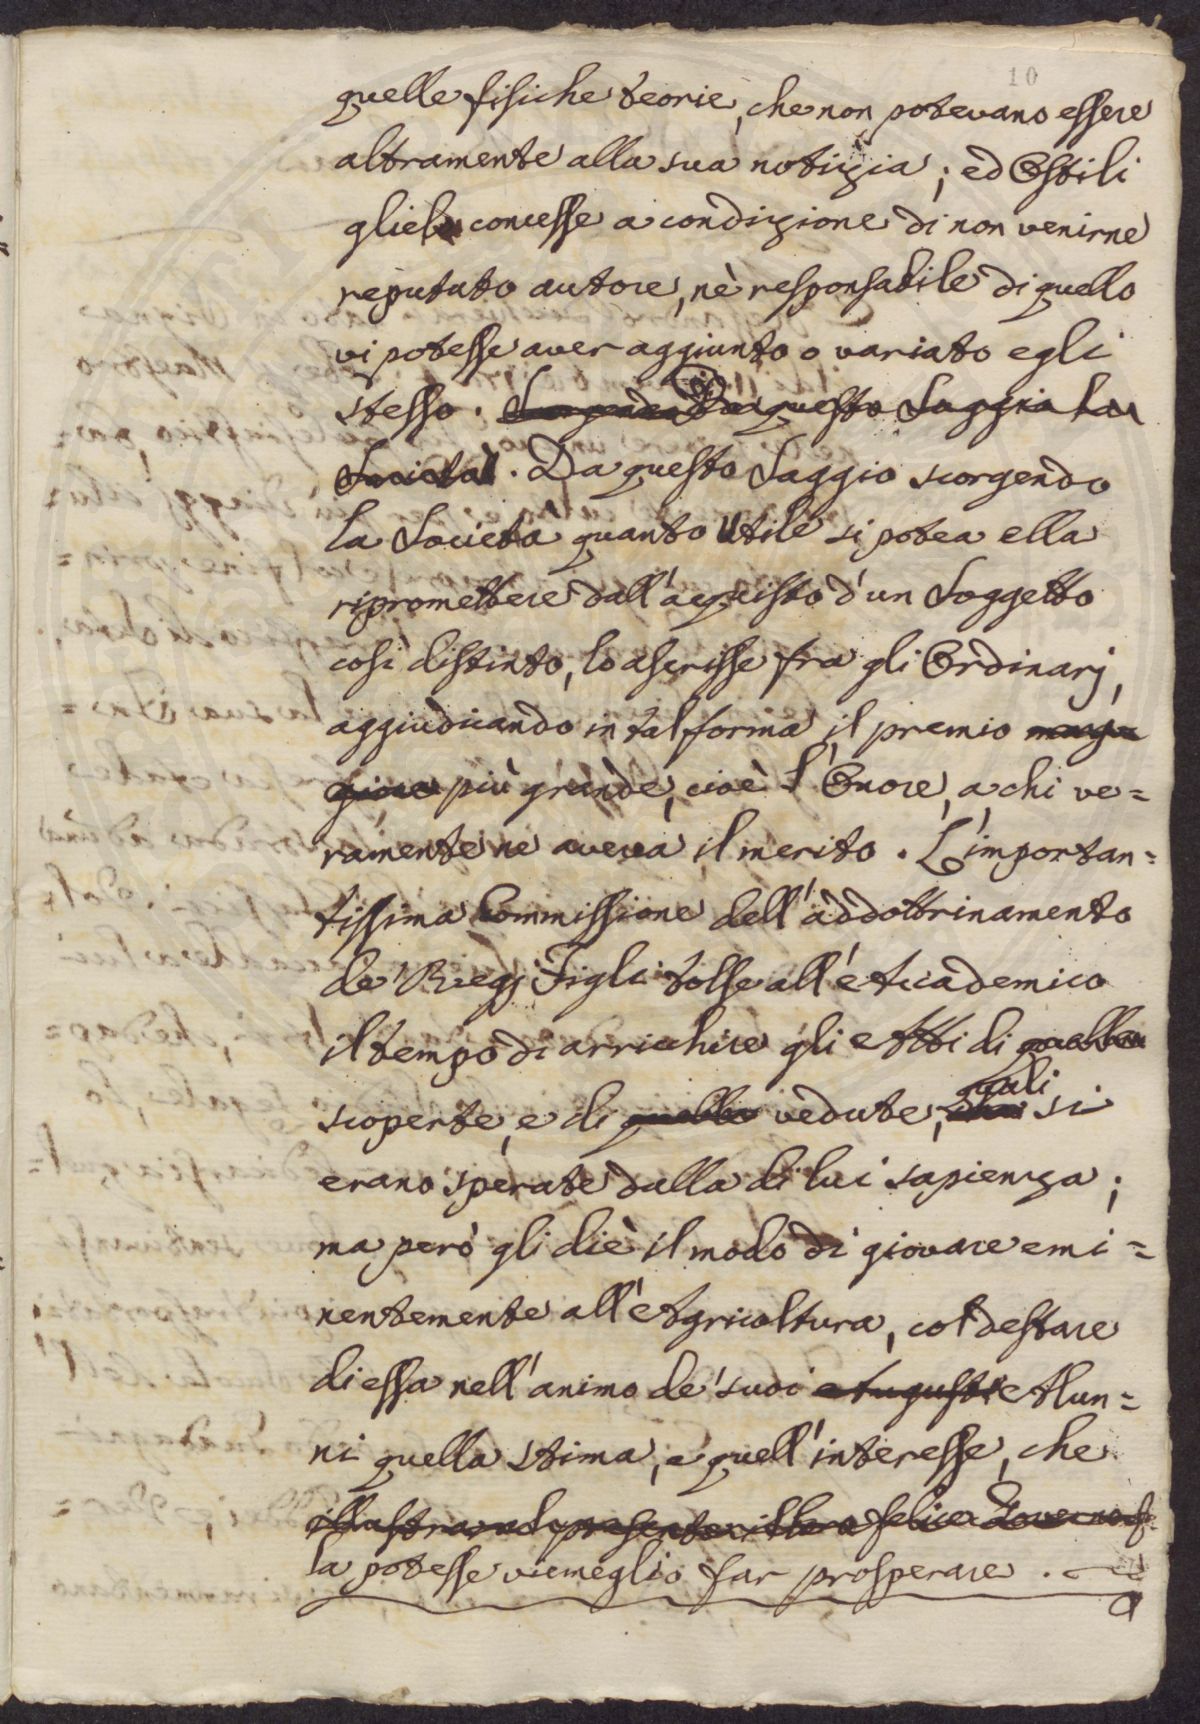 10
quelle fisiche teorie, che non potevano essere
altramente alla sua notizia; ed Ostili
gliele concesse a condizione di non venirne
reputato autore, nè responsabile di quello
vi potesse aver aggiunto o variato egli
stesso. Da questo Saggio la
Società. Da questo Saggio scorgendo
la Società quanto Utile si potea ella
ripromettere dall'acquisto d'un Soggetto
così distinto, lo ascrisse fra gli Ordinarj,
aggiudicando in tal forma il premio mag
giore più grande, cioè l'Onore, a chi ve=
ramente ne aveva il merito. L'importan=
tissima Commissione dell'addottrinamento
de' Regj Figli tolse all'Accademico
il tempo di arricchire gli Atti di quelle
scoperte, e di quelle vedute, che quali si
erano sperate dalla di lui sapienza;
ma però gli diè il modo di giovare emi=
nentemente all'Agricoltura, col destare
di essa nell'animo de' suoi Augusti Alun=
ni quella stima, e quell'interesse, che
felice Governo
la potesse viemeglio far prosperare.